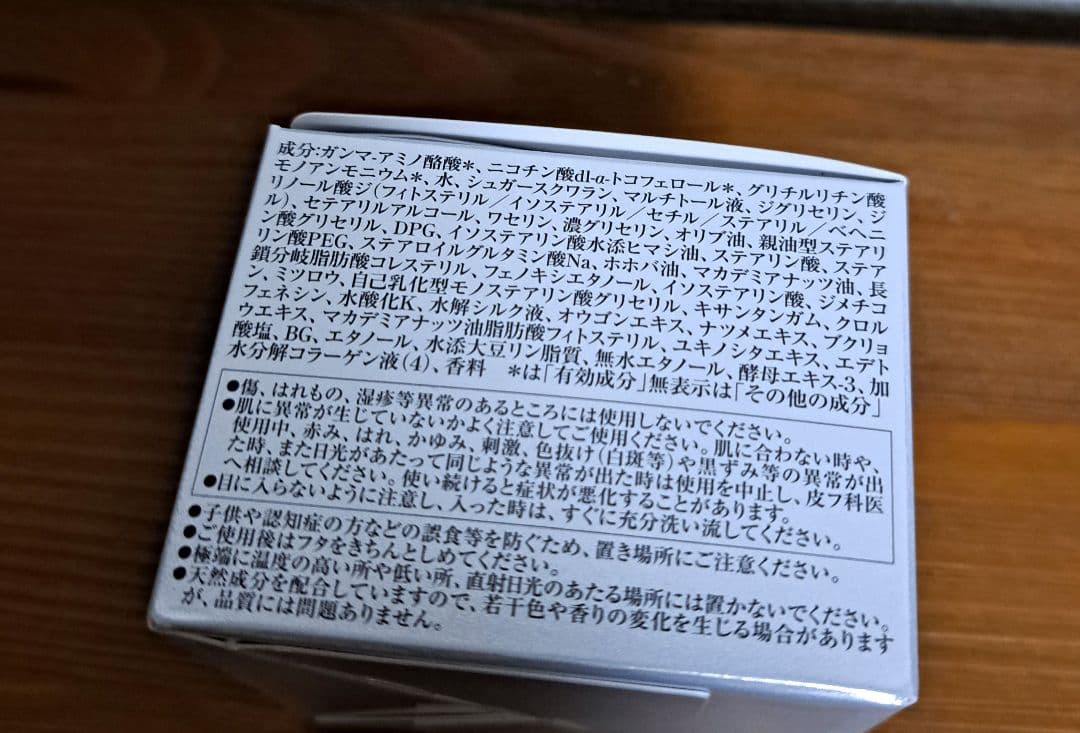 成分:ガンマ-アミノ酪酸*、ニコチン酸dl-α-トコフェロール*、グリチルリチン酸
モノアンモニウム*、水、シュガースクワラン、マルチトール液、ジグリセリン、ジ
リノール酸ジ(フィトステリル/イソステアリル/セチル/ステアリル/ベヘニ
ル)、セテアリルアルコール、ワセリン、濃グリセリン、オリブ油、親油型ステアリ
ン酸グリセリル、DPG、イソステアリン酸水添ヒマシ油、ステアリン酸、ステア
リン酸PEG、ステアロイルグルタミン酸Na、ホホバ油、マカデミアナッツ油、長
鎖分岐脂肪酸コレステリル、フェノキシエタノール、イソステアリン酸、ジメチコ
ン、ミツロウ、自己乳化型モノステアリン酸グリセリル、キサンタンガム、クロル
フェネシン、水酸化K、水解シルク液、オウゴンエキス、ナツメエキス、ブクリョ
ウエキス、マカデミアナッツ油脂肪酸フィトステリル、ユキノシタエキス、エデト
酸塩、BG、エタノール、水添大豆リン脂質、無水エタノール、酵母エキス-3、加
水分解コラーゲン液(4)、香料 *は「有効成分」無表示は「その他の成分」
●傷、はれもの、湿疹等異常のあるところには使用しないでください。
●肌に異常が生じていないかよく注意してご使用ください。肌に合わない時や、
使用中、赤み、はれ、かゆみ、刺激、色抜け(白斑等)や黒ずみ等の異常が出
た時、また日光があたって同じような異常が出た時は使用を中止し、皮フ科医
へ相談してください。使い続けると症状が悪化することがあります。
●目に入らないように注意し、入った時は、すぐに充分洗い流してください。
●子供や認知症の方などの誤食等を防ぐため、置き場所にご注意ください。
●ご使用後はフタをきちんとしめてください。
●極端に温度の高い所や低い所、直射日光のあたる場所には置かないでください。
●天然成分を配合していますので、若干色や香りの変化を生じる場合があります
が、品質には問題ありません。